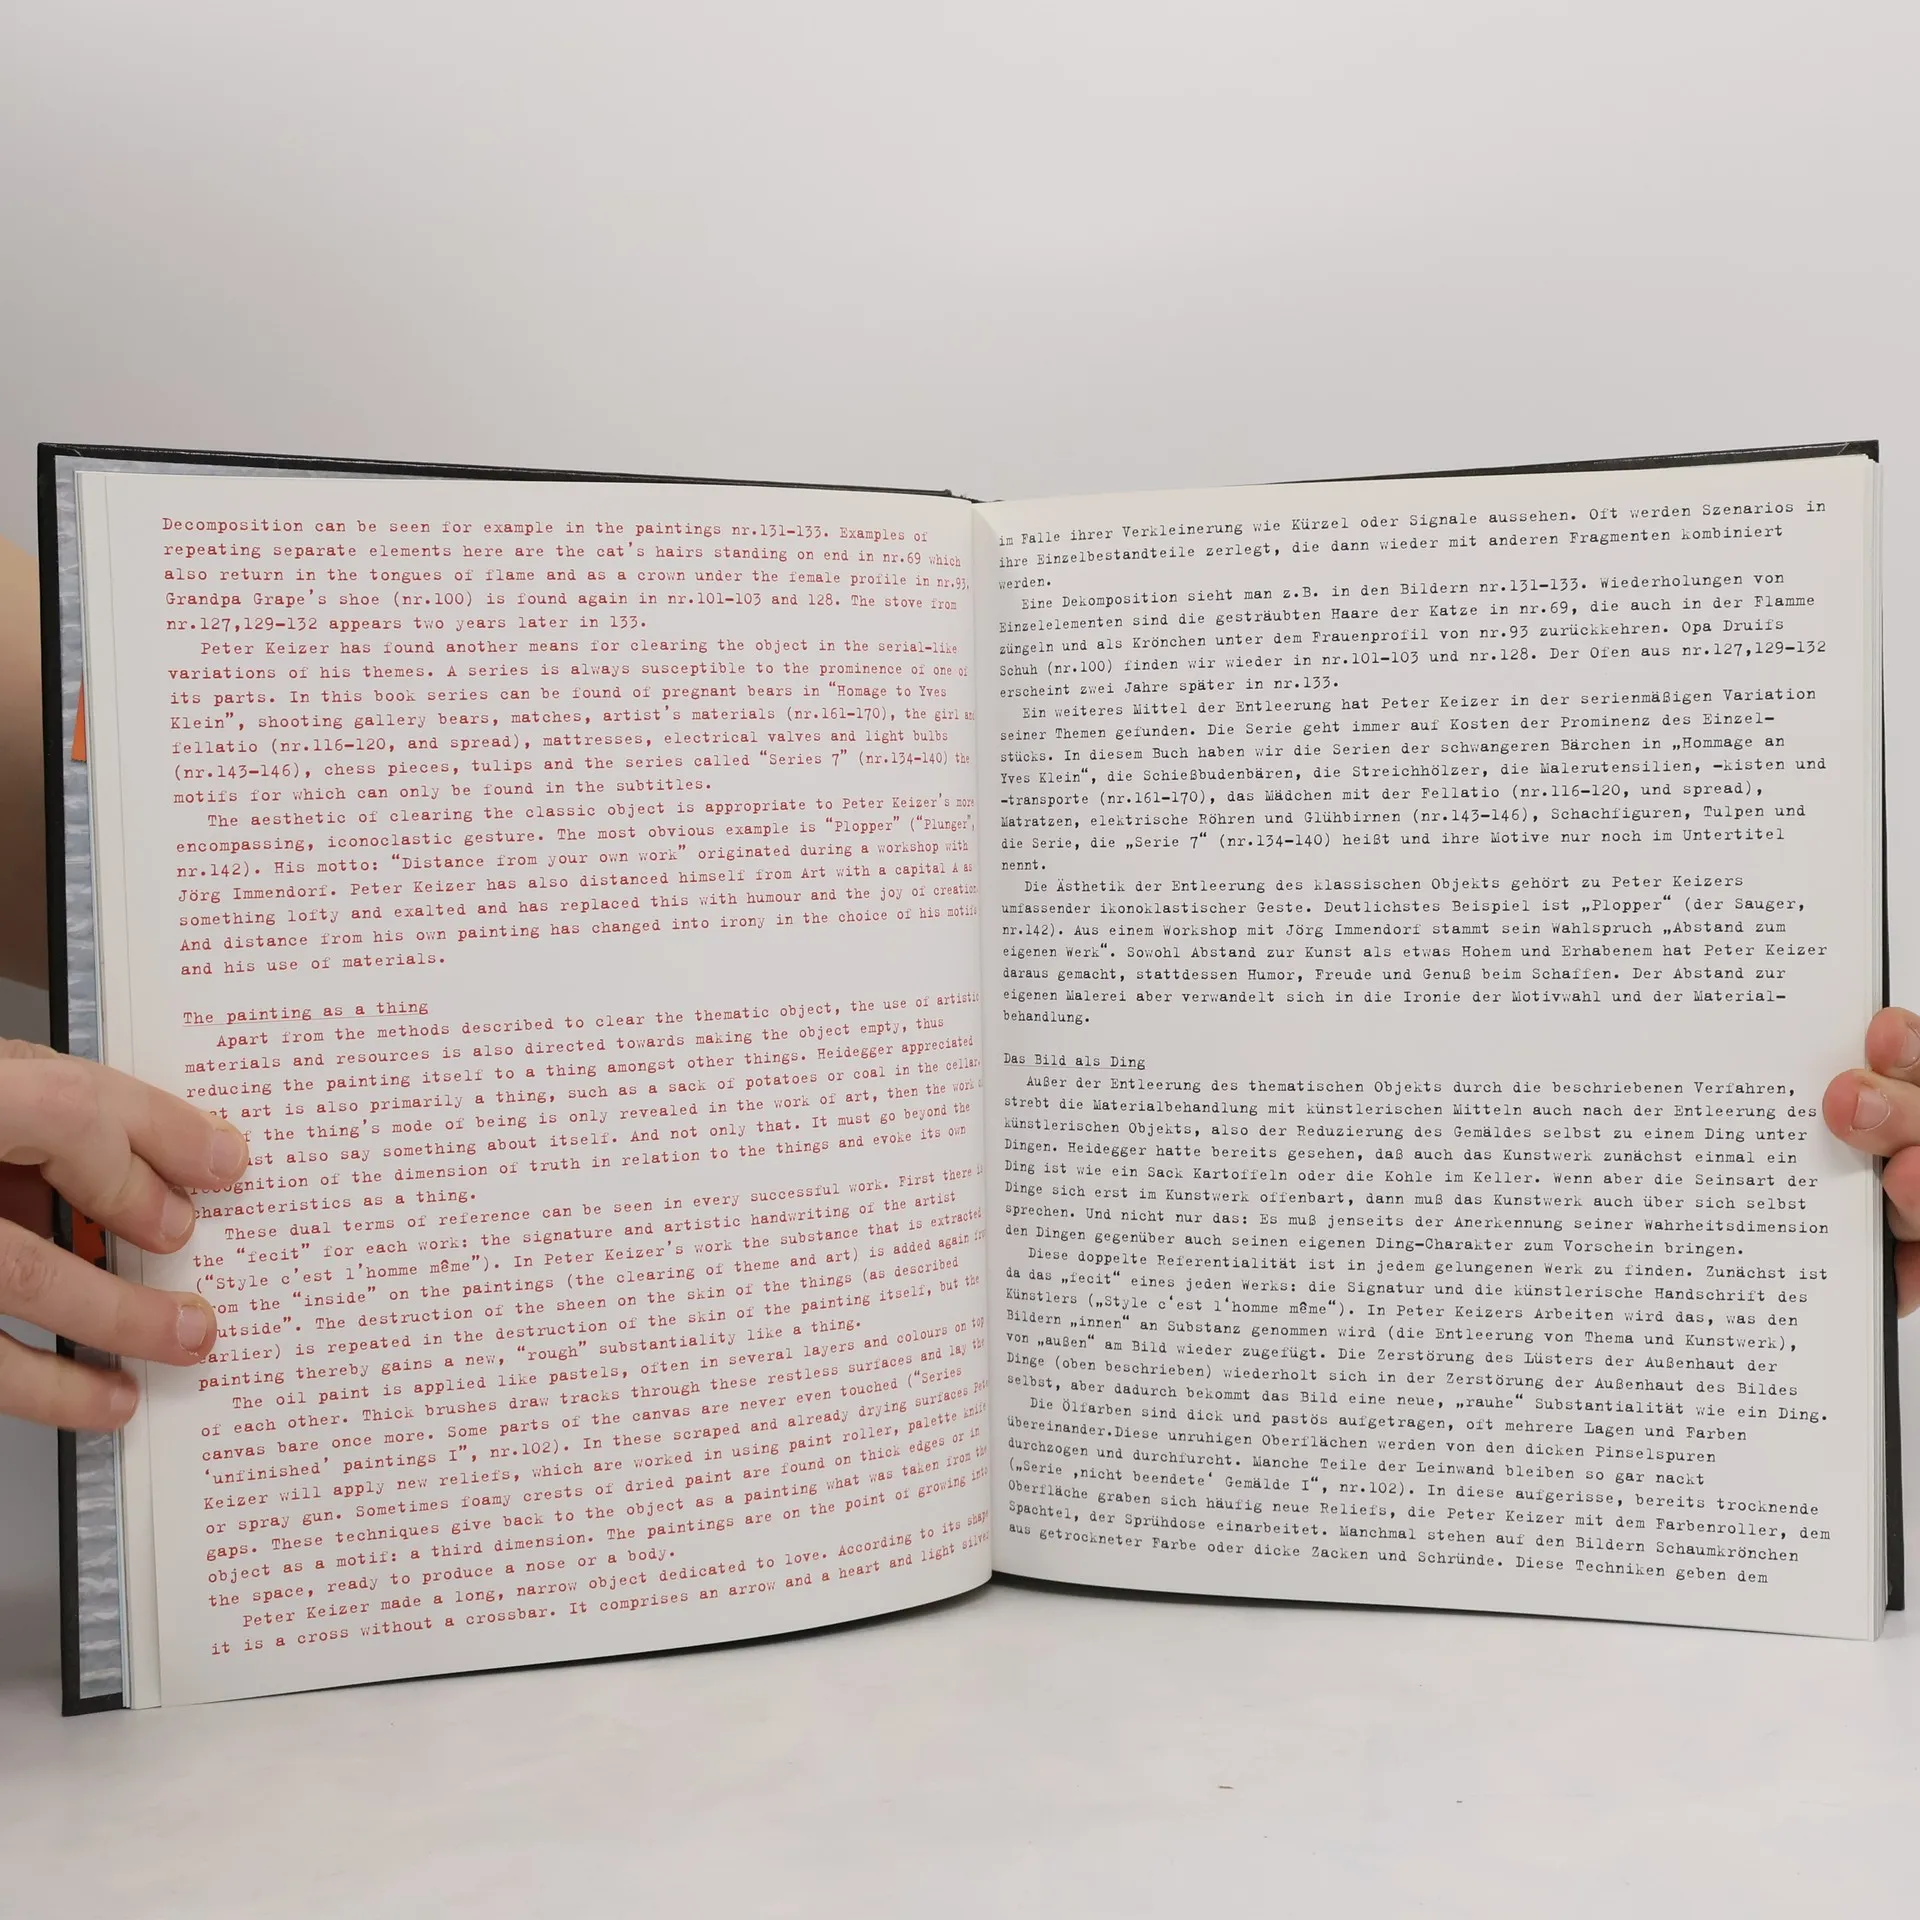 Decomposition can be seen for example in the paintings nr.131-133. Examples of
repeating separate elements here are the cat's hairs standing on end in nr.69 which
also return in the tongues of flame and as a crown under the female profile in nr.93.
Grandpa Grape's shoe (nr.100) is found again in nr.101-103 and 128. The stove from
nr.127,129-132 appears two years later in 133.
Peter Keizer has found another means for clearing the object in the serial-like
variations of his themes. A series is always susceptible to the prominence of one of
its parts. In this book series can be found of pregnant bears in "Homage to Yves
Klein", shooting gallery bears, matches, artist's materials (nr.161-170), the girl
fellatio (nr.116-120, and spread), mattresses, electrical valves and light bulbs
(nr.143-146), chess pieces, tulips and the series called "Series 7" (nr.134-140) the
motifs for which can only be found in the subtitles.
The aesthetic of clearing the classic object is appropriate to Peter Keizer's more
encompassing, iconoclastic gesture. The most obvious example is "Plopper" ("Plunger",
nr.142). His motto: "Distance from your own work" originated during a workshop with
Jörg Immendorf. Peter Keizer has also distanced himself from Art with a capital A as
something lofty and exalted and has replaced this with humour and the joy of creation
And distance from his own painting has changed into irony in the choice of his motifs
and his use of materials.
The painting as a thing
Apart from the methods described to clear the thematic object, the use of artistic
materials and resources is also directed towards making the object empty, thus
reducing the painting itself to a thing amongst other things. Heidegger appreciated
art is also primarily a thing, such as a sack of potatoes or coal in the cellar.
the thing's mode of being is only revealed in the work of art, then the work
also say something about itself. And not only that. It must go beyond the
recognition of the dimension of truth in relation to the things and evoke its own
characteristics as a thing.
These dual terms of reference can be seen in every successful work. First there is
the "fecit" for each work: the signature and artistic handwriting of the artist
("Style c'est l'homme même"). In Peter Keizer's work the substance that is extracted
from the "inside" on the paintings (the clearing of theme and art) is added again from
outside". The destruction of the sheen on the skin of the things (as described
earlier) is repeated in the destruction of the skin of the painting itself, but the
painting thereby gains a new, "rough" substantiality like a thing.
The oil paint is applied like pastels, often in several layers and colours on top
of each other. Thick brushes draw tracks through these restless surfaces and lay the
canvas bare once more. Some parts of the canvas are never even touched ("Series
'unfinished' paintings I", nr.102). In these scraped and already drying surfaces Peter
Keizer will apply new reliefs, which are worked in using paint roller, palette knife
or spray gun. Sometimes foamy crests of dried paint are found on thick edges or in
gaps. These techniques give back to the object as a painting what was taken from the
object as a motif: a third dimension. The paintings are on the point of growing into
the space, ready to produce a nose or a body.
Peter Keizer made a long, narrow object dedicated to love. According to its shape
it is a cross without a crossbar. It comprises an arrow and a heart and light silver
im Falle ihrer Verkleinerung wie Kürzel oder Signale aussehen. Oft werden Szenarios in
ihre Einzelbestandteile zerlegt, die dann wieder mit anderen Fragmenten kombiniert
werden.
Eine Dekomposition sieht man z.B. in den Bildern nr.131-133. Wiederholungen von
Einzelelementen sind die gesträubten Haare der Katze in nr.69, die auch in der Flamme
züngeln und als Krönchen unter dem Frauenprofil von nr.93 zurückkehren. Opa Druifs
Schuh (nr.100) finden wir wieder in nr.101-103 und nr.128. Der Ofen aus nr.127,129-132
erscheint zwei Jahre später in nr.133.
Ein weiteres Mittel der Entleerung hat Peter Keizer in der serienmäßigen Variation
seiner Themen gefunden. Die Serie geht immer auf Kosten der Prominenz des Einzel-
stücks. In diesem Buch haben wir die Serien der schwangeren Bärchen in „Hommage an
Yves Klein“, die Schießbudenbären, die Streichhölzer, die Malerutensilien, -kisten und
-transporte (nr.161-170), das Mädchen mit der Fellatio (nr.116-120, und spread),
Matratzen, elektrische Röhren und Glühbirnen (nr.143-146), Schachfiguren, Tulpen und
die Serie, die „Serie 7“ (nr.134-140) heißt und ihre Motive nur noch im Untertitel
nennt.
Die Ästhetik der Entleerung des klassischen Objekts gehört zu Peter Keizers
umfassender ikonoklastischer Geste. Deutlichstes Beispiel ist „Plopper“ (der Sauger,
nr.142). Aus einem Workshop mit Jörg Immendorf stammt sein Wahlspruch „Abstand zum
eigenen Werk“. Sowohl Abstand zur Kunst als etwas Hohem und Erhabenem hat Peter Keizer
daraus gemacht, stattdessen Humor, Freude und Genuß beim Schaffen. Der Abstand zur
eigenen Malerei aber verwandelt sich in die Ironie der Motivwahl und der Material-
behandlung.
Das Bild als Ding
Außer der Entleerung des thematischen Objekts durch die beschriebenen Verfahren,
strebt die Materialbehandlung mit künstlerischen Mitteln auch nach der Entleerung des
künstlerischen Objekts, also der Reduzierung des Gemäldes selbst zu einem Ding unter
Dingen. Heidegger hatte bereits gesehen, daß auch das Kunstwerk zunächst einmal ein
Ding ist wie ein Sack Kartoffeln oder die Kohle im Keller. Wenn aber die Seinsart der
Dinge sich erst im Kunstwerk offenbart, dann muß das Kunstwerk auch über sich selbst
sprechen. Und nicht nur das: Es muß jenseits der Anerkennung seiner Wahrheitsdimension
den Dingen gegenüber auch seinen eigenen Ding-Charakter zum Vorschein bringen.
Diese doppelte Referentialität ist in jedem gelungenen Werk zu finden. Zunächst ist
da das „fecit“ eines jeden Werks: die Signatur und die künstlerische Handschrift des
Künstlers („Style c'est l'homme même“). In Peter Keizers Arbeiten wird das, was den
Bildern „innen“ an Substanz genommen wird (die Entleerung von Thema und Kunstwerk),
von „außen“ am Bild wieder zugefügt. Die Zerstörung des Lüsters der Außenhaut der
Dinge (oben beschrieben) wiederholt sich in der Zerstörung der Außenhaut des Bildes
selbst, aber dadurch bekommt das Bild eine neue, „rauhe“ Substantialität wie ein Ding.
Die Ölfarben sind dick und pastös aufgetragen, oft mehrere Lagen und Farben
übereinander.Diese unruhigen Oberflächen werden von den dicken Pinselspuren
durchzogen und durchfurcht. Manche Teile der Leinwand bleiben so gar nackt
(„Serie ‚nicht beendete‘ Gemälde I“, nr.102). In diese aufgerisse, bereits trocknende
Oberfläche graben sich häufig neue Reliefs, die Peter Keizer mit dem Farbenroller, dem
Spachtel, der Sprühdose einarbeitet. Manchmal stehen auf den Bildern Schaumkrönchen
aus getrockneter Farbe oder dicke Zacken und Schründe. Diese Techniken geben dem